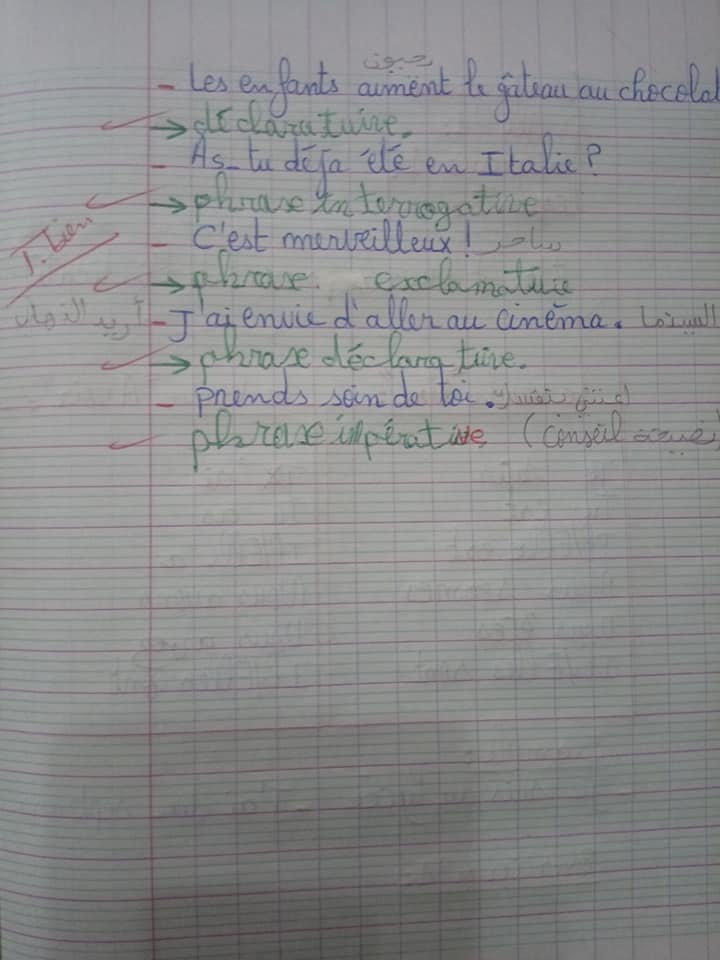 يحبون
- Les enfants aiment le gâteau au chocolat
→ déclarative.
- As-tu déjà été en Italie ?
→ phrase interrogative
T. bien
- C'est merveilleux ! ساحر
→ phrase exclamative
أريد الذهاب - J'ai envie d'aller au cinéma. السينما
→ phrase déclarative.
- prends soin de toi. إعتني بنفسك
phrase impérative (conseil نصيحة)